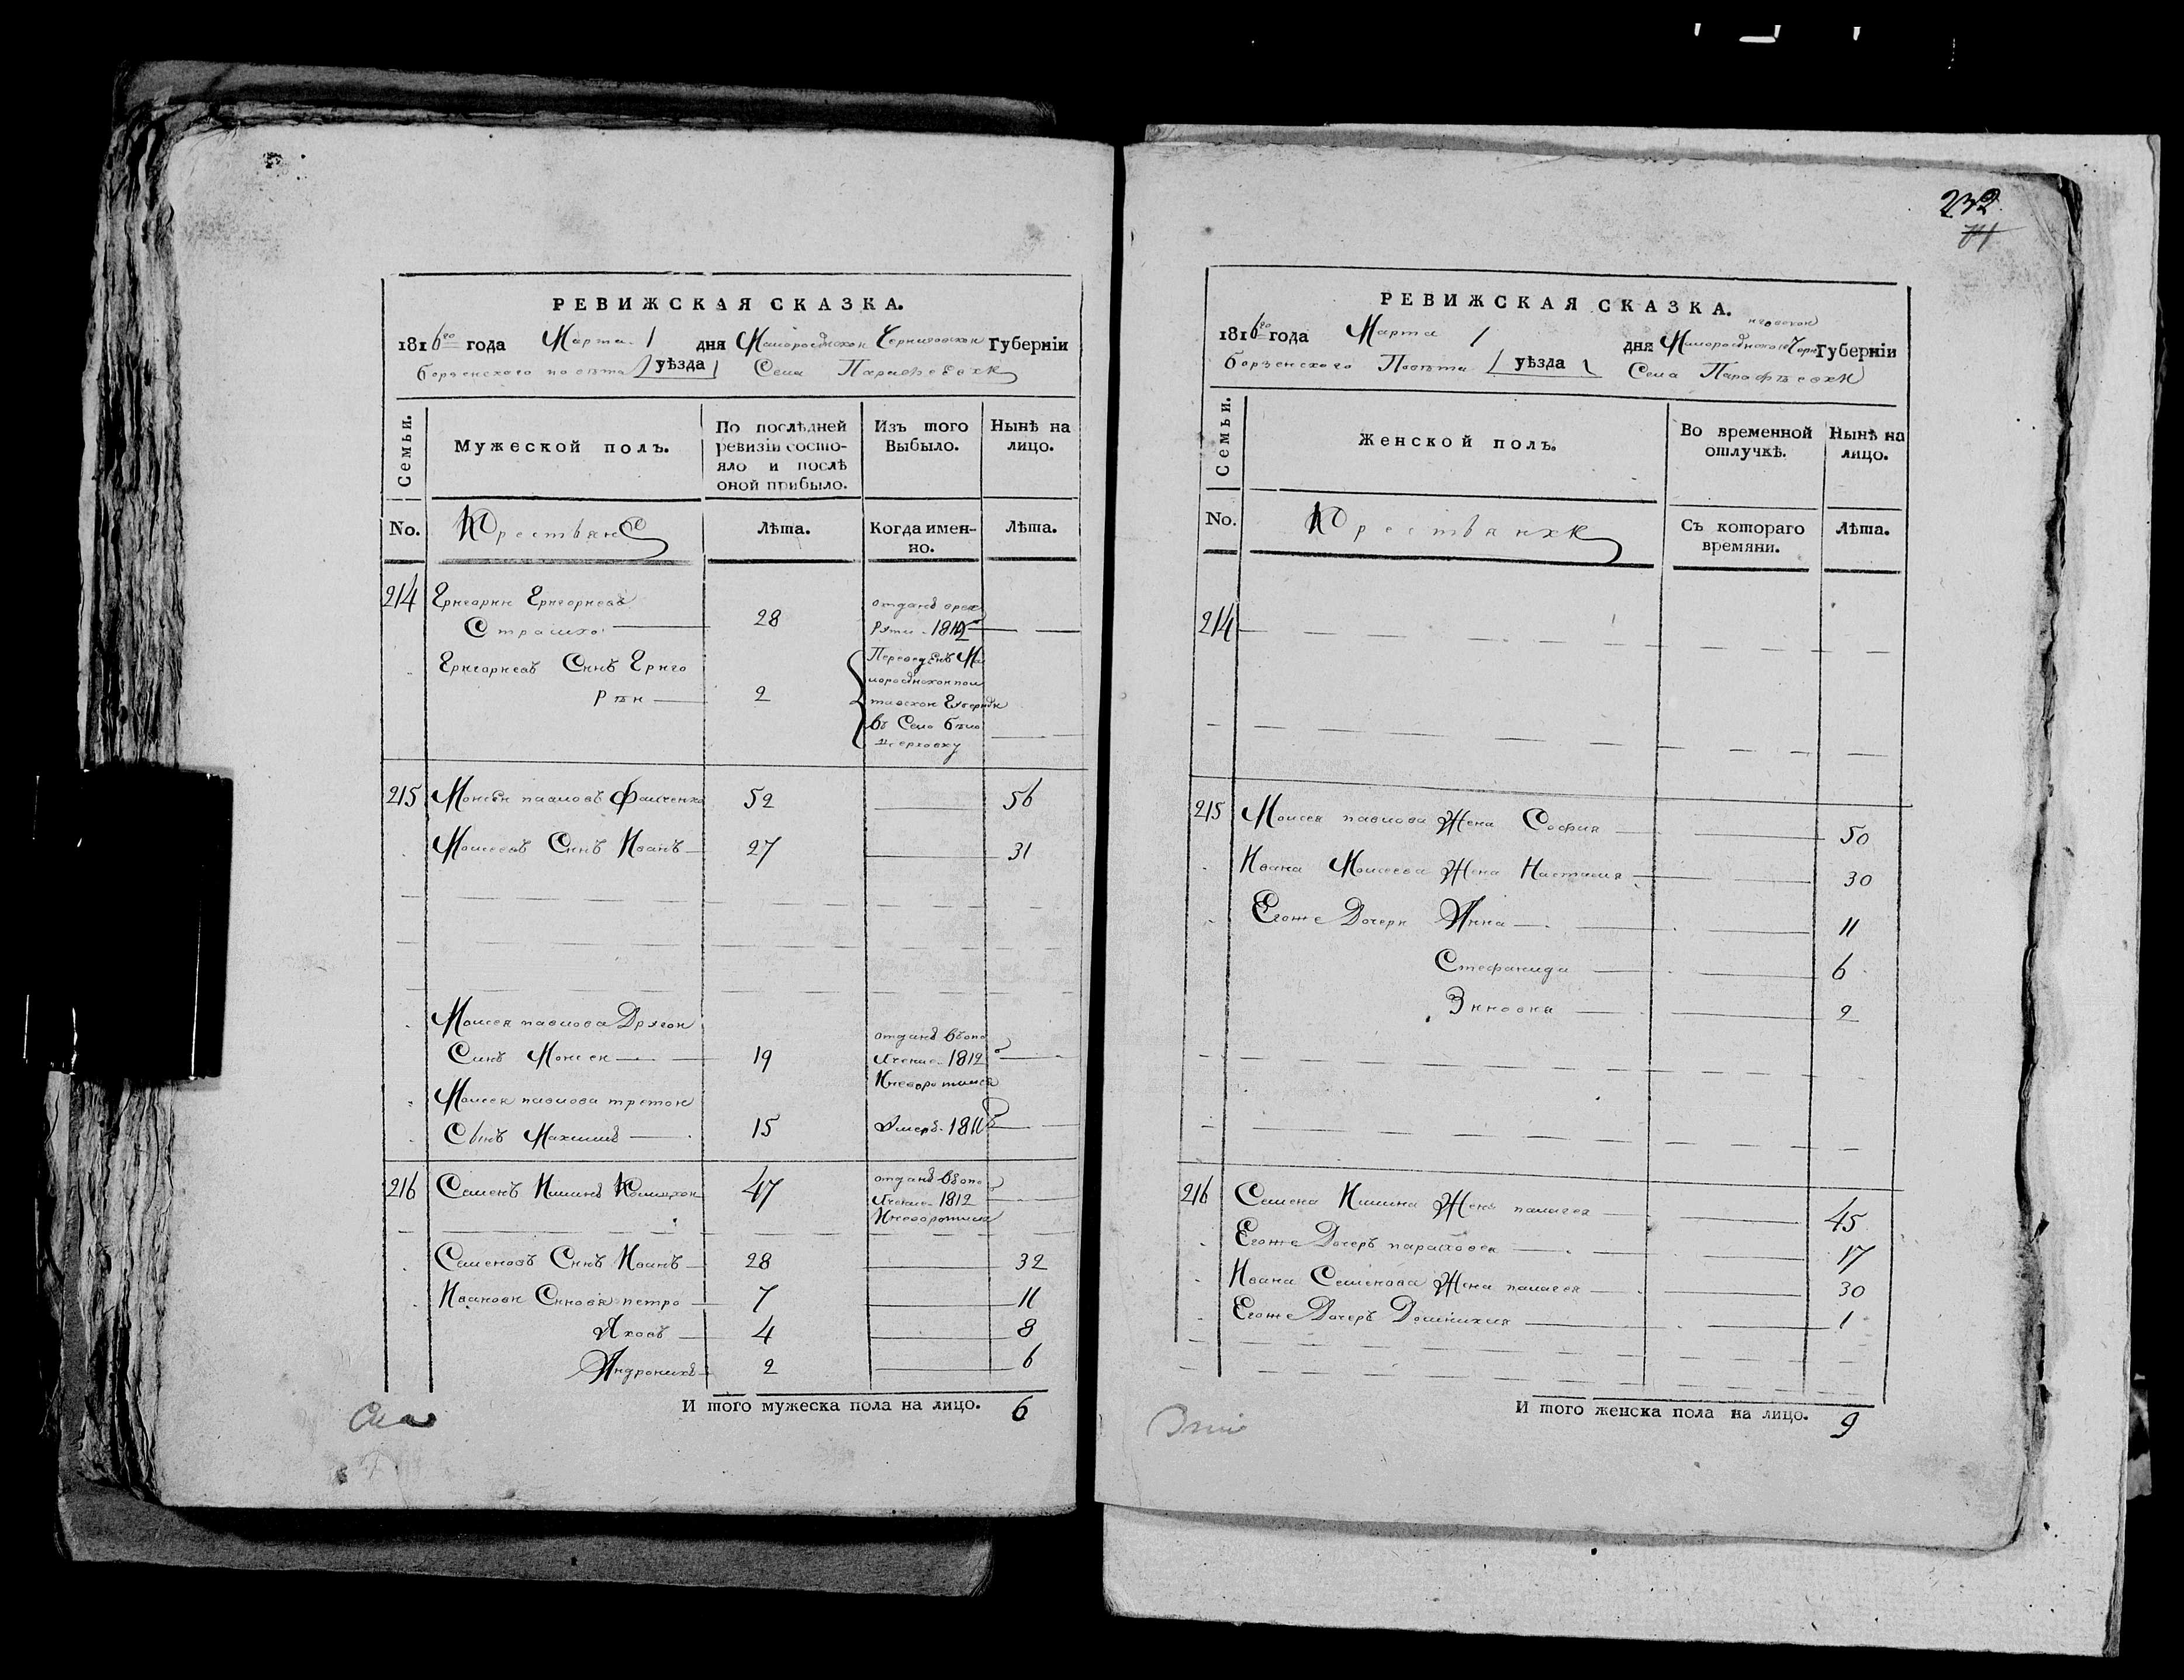 РЕВИЖСКАЯ СКАЗКА.
1816го года Марта 1 дня Малоросійской Черниговской Губерніи
борзенского повѣта уѣзда Села Парафѣевки
Семьи.
Мужеской полъ.
По послѣдней ревизіи состо-
яло и послѣ
оной прибыло.
Изъ того
Выбыло.
Нынѣ на
лицо.
No.
Крестьяне
Лѣта.
Когда имен-
но.
Лѣта.
214 Григорий Григориевъ
Страшко 28 отданъ врек
руты 1812
Григориевъ Сынъ Григо
рѣй 2 Переведенъ Ма
лоросійской пол
тавской Губерніи
въ Село бѣло
церковку
215 Моисей павловъ 52 56
Моисеевъ Сынъ Иванъ 27 31
Моисея павлова Другой
Сынъ Моисей 19 отданъ въопо
лчение 1812
Иневоротился
Моисея павлова третой
Сынъ Максимъ 15 Умеръ 1811
216 Семенъ Илинъ 47 отданъ въопо
лчение 1812
Иневоротился
Семеновъ Сынъ Иванъ 28 32
Ивановы Сыновя петро 7 11
Яковъ 4 8
Андроникъ 2 6
И того мужеска пола на лицо. 6
232
РЕВИЖСКАЯ СКАЗКА.
1816го года Марта 1 дня Малоросійской Черниговской Губерніи
борзенского Повѣта уѣзда Села Парафѣевки
Семьи.
Женской полъ.
Во временной
отлучкѣ.
Нынѣ на
лицо.
No.
Крестьянки
Съ котораго
времяни.
Лѣта.
214
215 Моисея павлова Жена София 50
Ивана Моисеева Жена Настасия 30
Егоже Дочери Анна 11
Стефанида 6
Зиновия 2
216 Семена Илина Жена палагея 45
Егоже Дочеръ парасковея 17
Ивана Семенова Жена палагея 30
Егоже Дочеръ Домникия 1
И того женска пола на лицо. 9